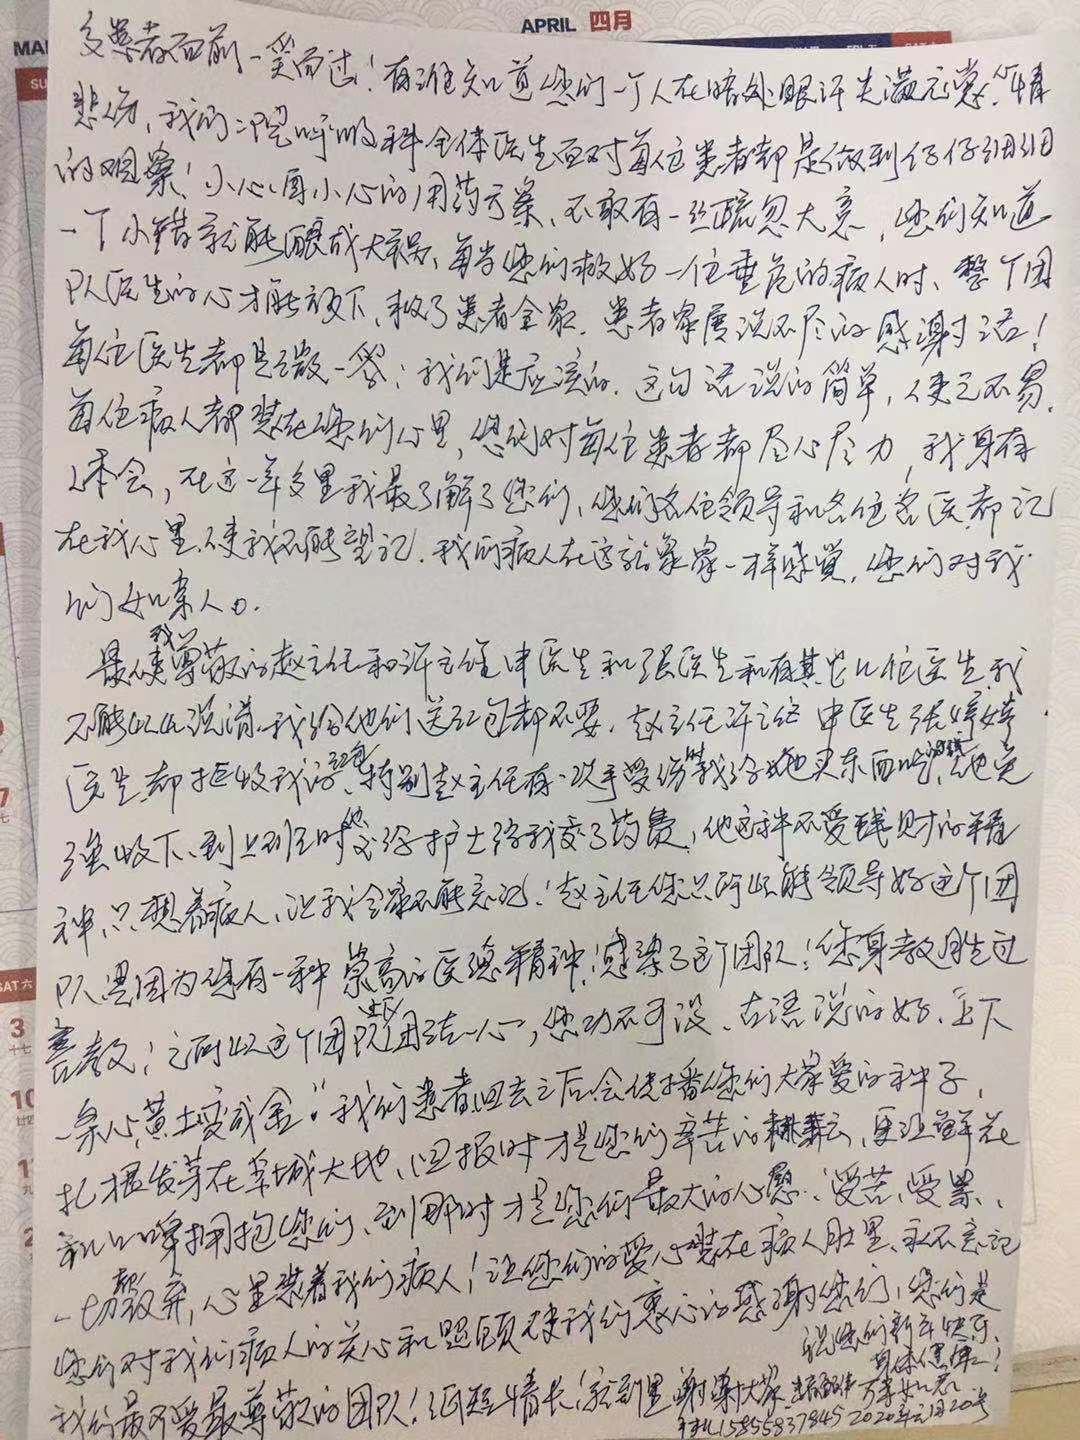 APRIL 四月
多患者面前一笑而过!有谁知道您们一个人在暗处眼汗失满元党心情
悲伤,我们二院呼吸科全体医生面对每位患者都是做到仔仔细细
的观察!小心再小心的用药方案、不取有一丝疏忽大意,您们知道
一丁小错就能酿成大祸、每当您们救好一位重危的病人时、整个团
队医生的心才能放下、救了患者全家.患者家属说不尽的感谢话!
每位医生都是微一笑:我们是应该的.这句话说的简单,使之不易.
每位病人都装在您们心里,您们对每位患者都尽心尽力,我身有
体会,在这一年多里我最了解了您们、您们各位领导和各位名医都记
在我心里.使我不能望记.我们病人在这就象家一样感觉.您们对我
们如亲人.
最使我尊敬的赵主任和许主任申医生和张医生和有其它几位医生.我
不能以以说清.我给他们送红包都不要.赵主任许主任申医生张婷婷
医生都拒收我的红包.特别赵主任有一次手受伤我给他买东西吃 他
强收下、到上班时他交给护士给我交了药费,他这种不爱钱财的精
神、只想着病人、让我全家不能忘记!赵主任您只所以能领导好这个团
队是因为您有一种崇高的医德精神!感染了这个团队!您身教胜过
言教!之所以这个团队团结一心,您功不可没、古语说的好、上下
一条心,黄土变成金"我们患者回去之后会传播您们大家爱的种子,
扎根发芽在 城大地、回报时才是您们辛苦的耕耘,更让鲜花
和 拥抱您们、到那时才是您们最大的心慰、受苦、受累、
一切都放弃,心里装着我们病人!让您们的爱心装在病人肚里、永不忘记
您们对我们病人的关心和照顾使我们衷心的感谢您们,您们是
我们最可爱最尊敬的团队!纸短情长!就到里 谢谢大家
祝您们新年快乐、
身体健康!
万事如意
手机15855837845 2020年元月20号